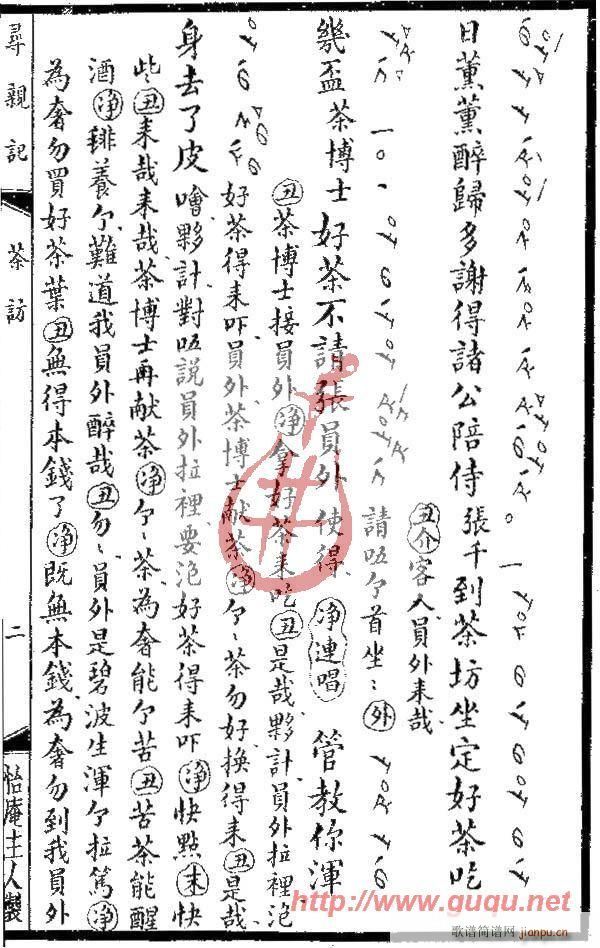 日薰薰醉歸多謝得諸公陪侍張千到茶坊坐定好茶吃
丑介客人員外来哉
請唔个首坐〻外
幾盃茶博士好茶不請張員外使得淨連唱管教你渾
丑茶博士接員外淨拿好茶来吃丑是哉夥計員外拉裡泡
好茶得来吓員外茶博士献茶淨个〻茶勿好换得来丑是哉
身去了皮噲夥計對唔説員外拉裡要泡好茶得来吓淨快點末快
些丑来哉来哉茶博士再献茶淨个〻茶為奢能个苦丑苦茶能醒
酒淨養个難道我員外醉哉丑勿〻員外是碧波生渾个拉篤淨
為奢勿買好茶葉丑無得本錢了淨既無本錢為奢勿到我員外
尋親記
茶訪
二
怡庵主人製
http://www.guqu.net
歌谱简谱网
jianpu.cn